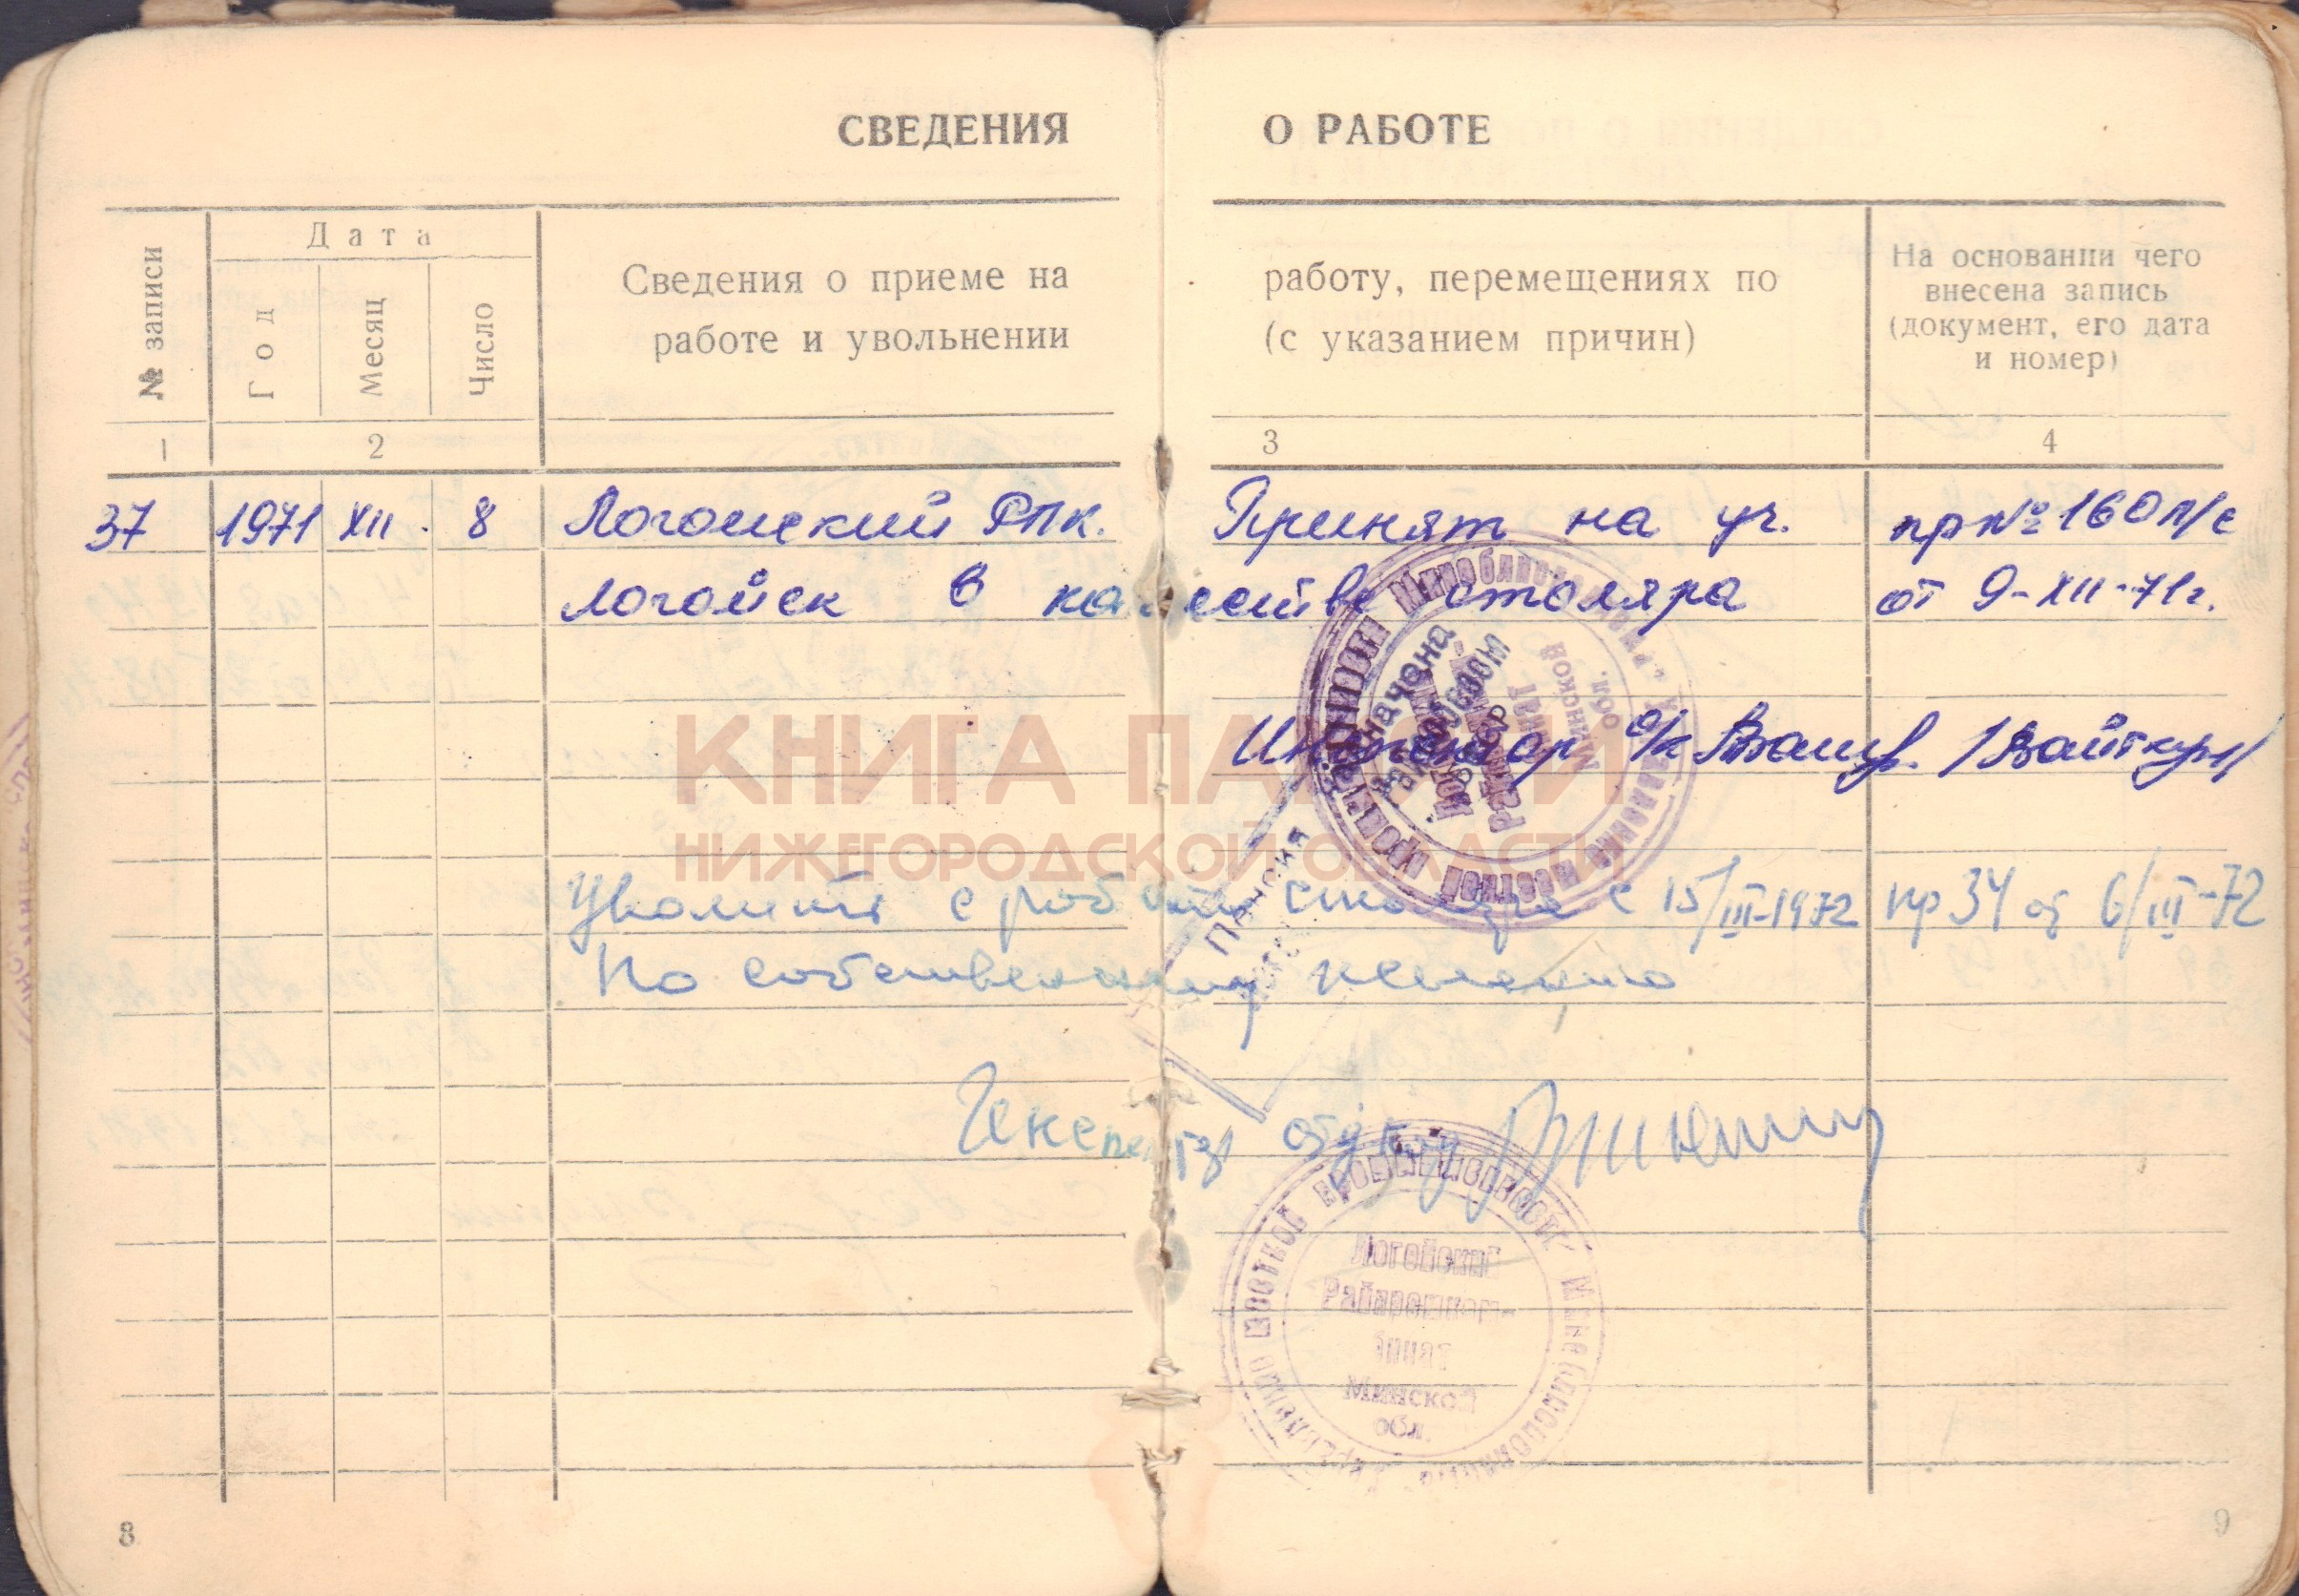 СВЕДЕНИЯ О РАБОТЕ
№ записи
Дата
Год
Месяц
Число
Сведения о приеме на работу, перемещениях по
работе и увольнении (с указанием причин)
На основании чего
внесена запись
(документ, его дата
и номер)
1 2 3 4
37 1971 XII. 8 Логойский РПК. Принят на уч. пр№160 л/с
Логойск в качестве столяра от 9-XII-71г.
Инспектор о/к
КНИГА ПАМЯТИ
НИЖЕГОРОДСКОЙ ОБЛАСТИ
Пенсия
назначена
Уволить с работы столяра с 15/III-1972 пр 34 от 6/III-72
по собственному желанию
местной промышленности
Логойский
Райпромком-
бинат
Минской
обл.
8
9